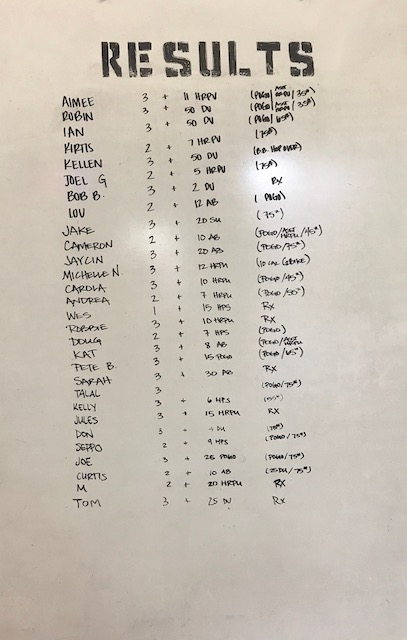 RESULTS
AIMEE 3 + 11 HRPU (POGO/ASST HRPU/35#)
ROBIN 3 + 50 DU (POGO/ASST HRPU/35#)
IAN 3 + 50 DU (POGO/65#)
KIRTIS 2 + 7 HRPU (75#)
KELLEN 3 + 50 DU (B.B. HOP OVER)
JOEL G 2 + 5 HRPU (75#)
BOB B. 3 + 2 DU Rx
LOU 2 + 12 AB (POGO)
JAKE 3 + 20 SU (75#)
CAMERON 2 + 10 AB (POGO/ASST HRPU/45#)
JAYLIN 3 + 20 AB (POGO/75#)
MICHELLE N. 3 + 12 HRPU (10 CAL
CAROLA 3 + 10 HRPU (POGO/45#)
ANDREA 2 + 7 HRPU (POGO/55#)
WES 1 + 15 HPS Rx
ROBBIE 3 + 10 HRPU Rx
DOUG 2 + 7 HPS (POGO)
KAT 3 + 8 AB (POGO/ASST HRPU)
PETE B. 3 + 15 POGO (POGO/65#)
SARAH 3 + 30 AB Rx
TALAL 3 (POGO/75#)
KELLY 3 + 6 HPS (55#)
JULES 3 + 15 HRPU Rx
DON 3 + 4 DU (75#)
SEPPO 2 + 9 HPS (POGO/75#)
JOE 3 + 25 POGO (POGO/75#)
CURTIS 2 + 10 AB (25DU/75#)
M 2 + 20 HRPU Rx
TOM 3 + 25 DU Rx